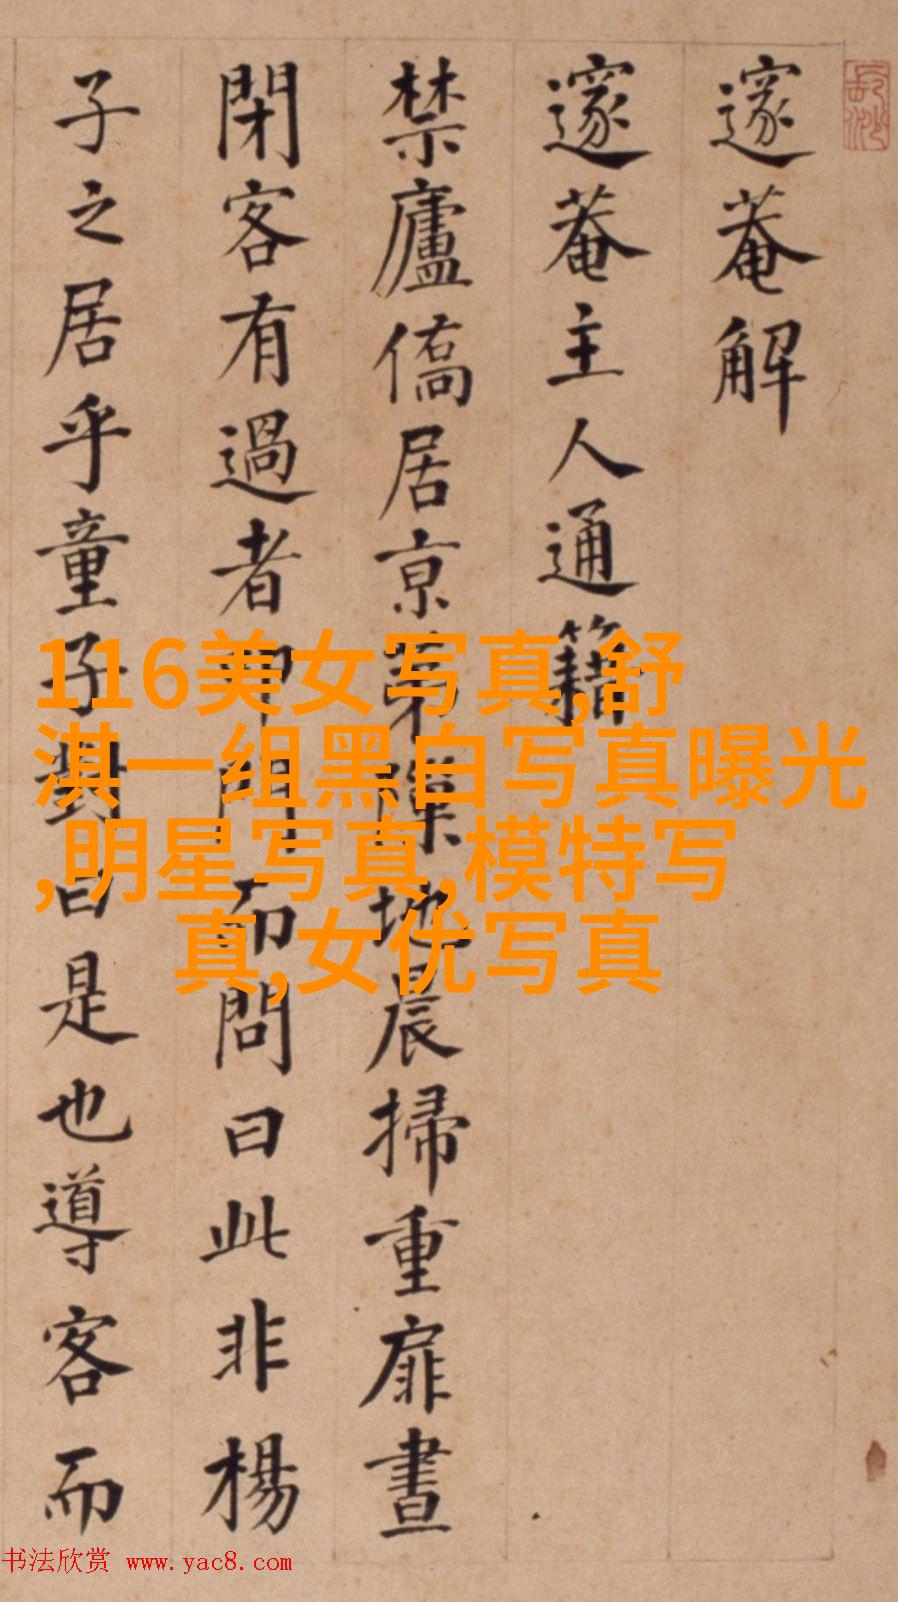 邃菴解
邃菴主人通籍
禁廬僑居京第隙地晨掃重扉晝
閉客有過者叩門而問曰此非楊
子之居乎童子對曰是也導客而
116美女写真,舒
淇一组黑白写真曝光
,明星写真,模特写
真,女优写真
书法欣赏 www.yac8.com